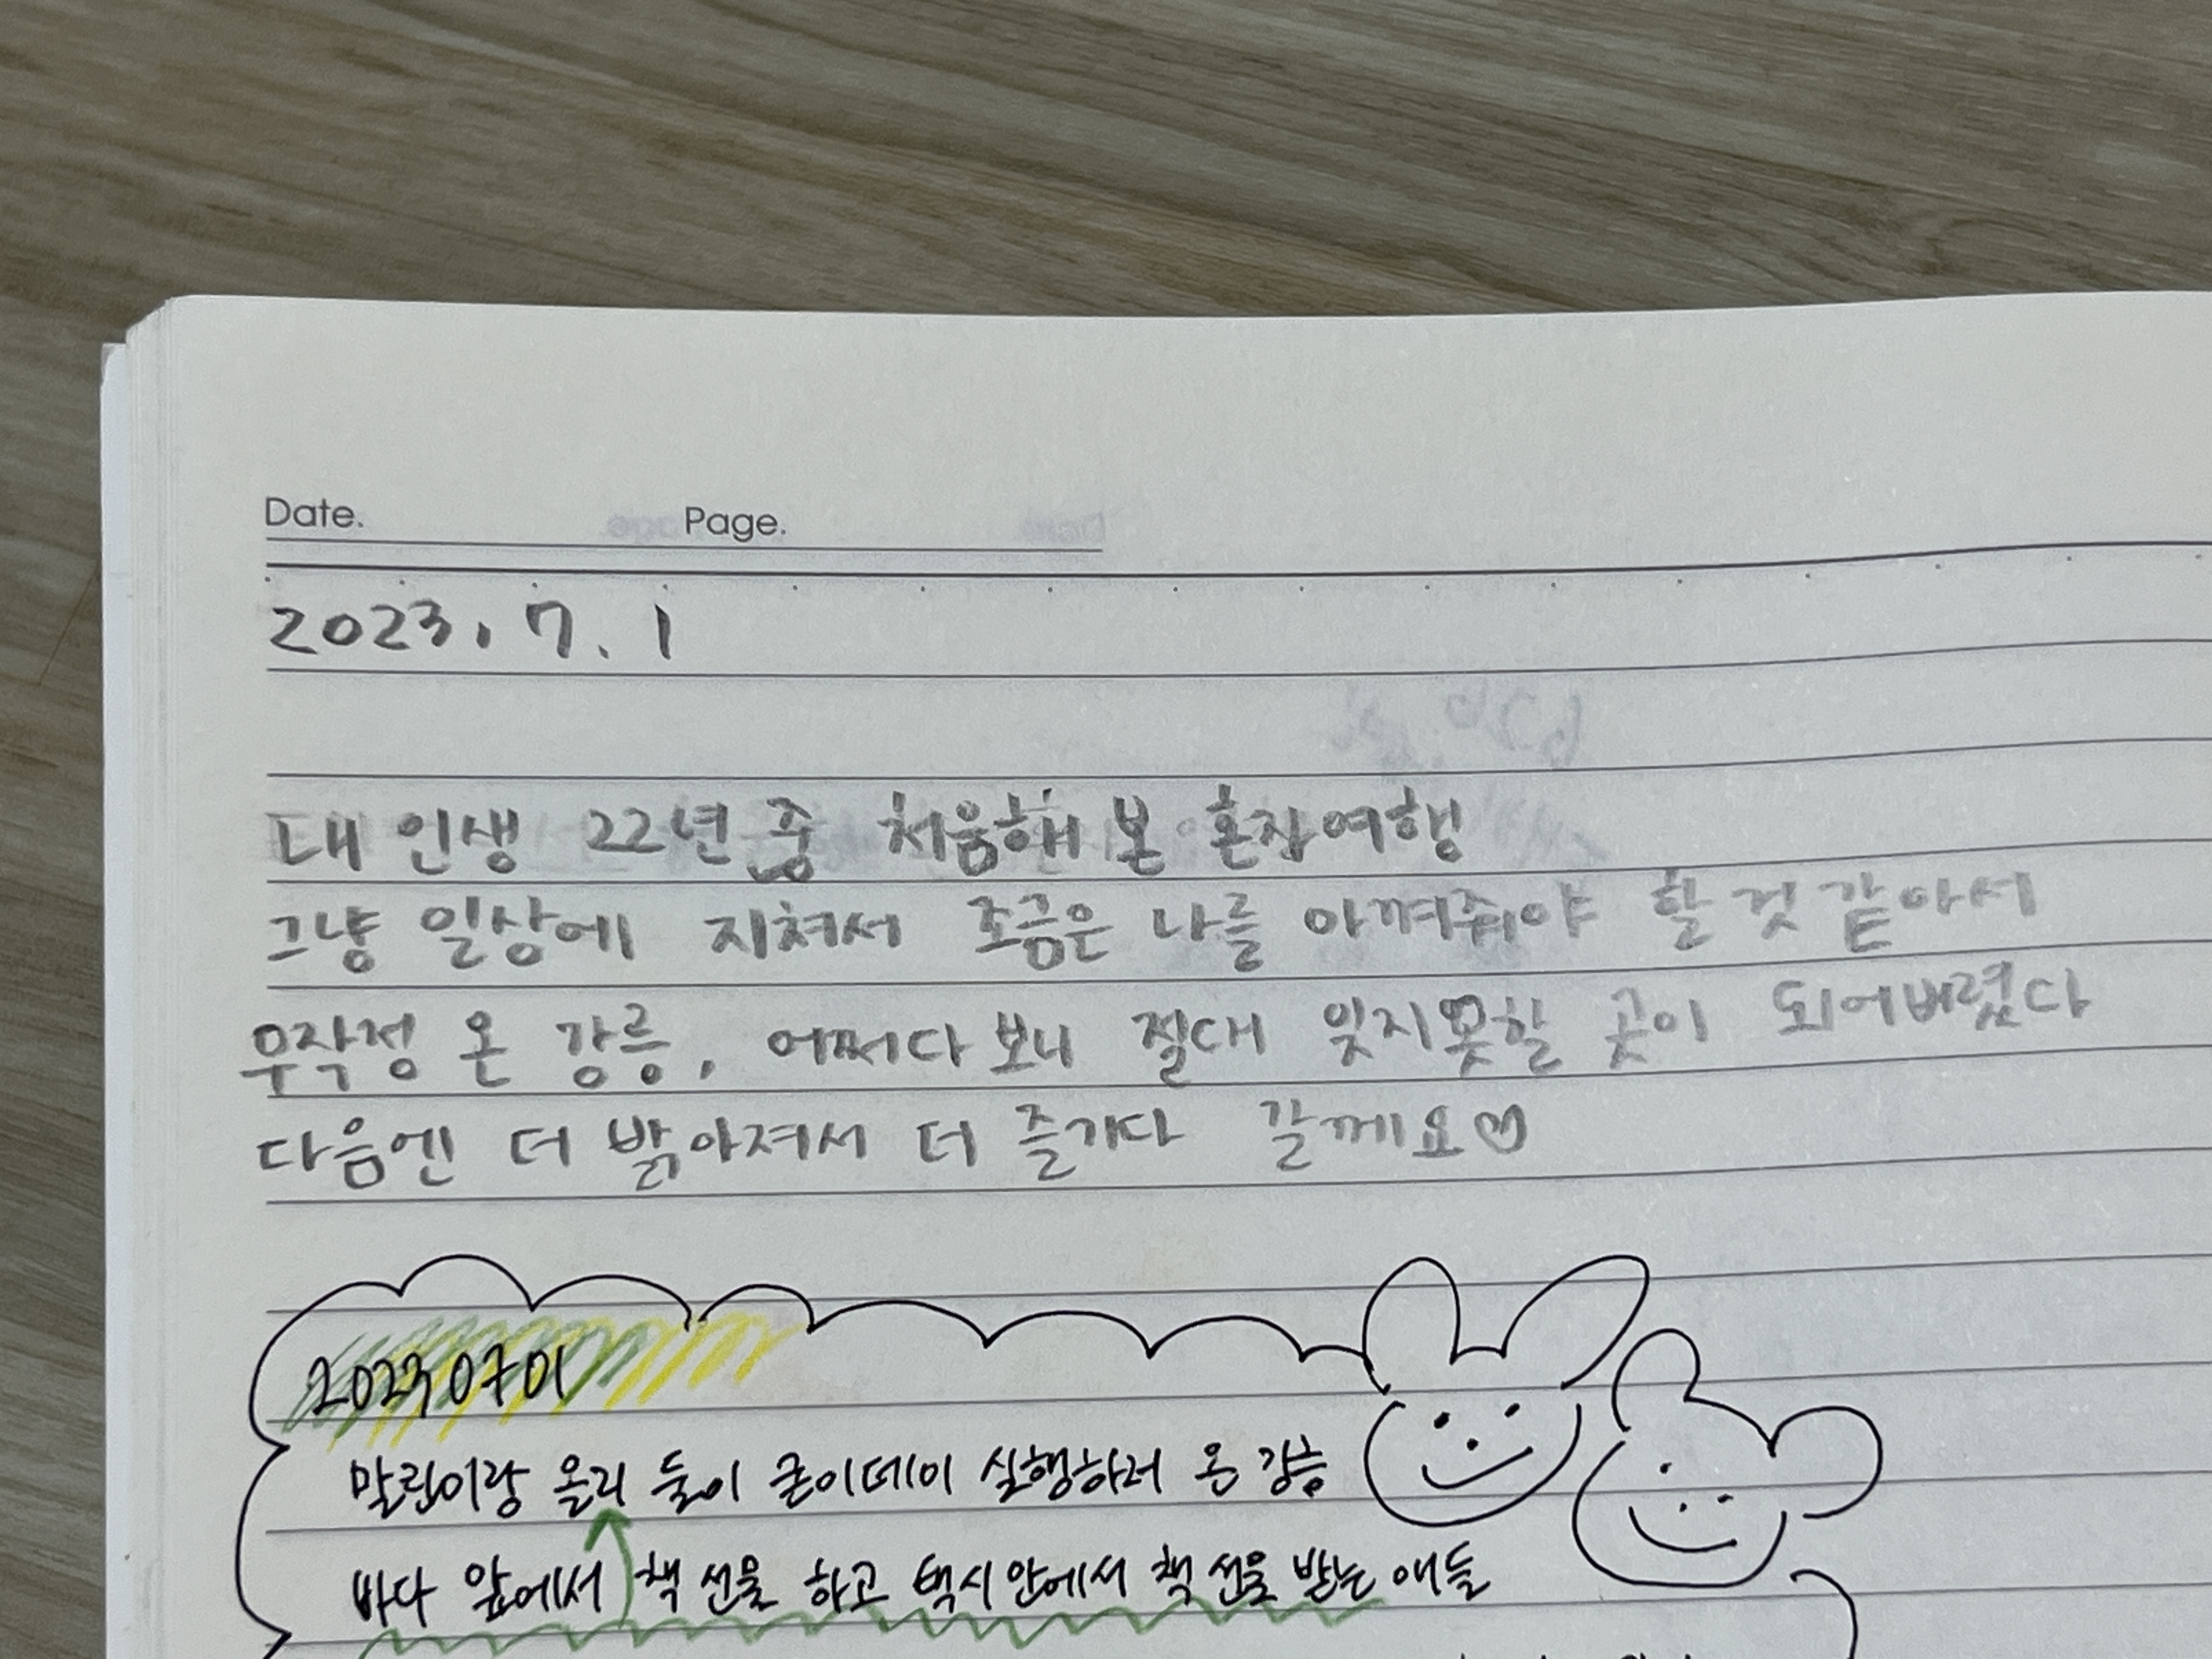 Date. Page.
2023. 7. 1
내 인생 22년 중 처음해 본 혼자여행
그냥 일상에 지쳐서 조금은 나를 아껴줘야 할 것 같아서
무작정 온 강릉, 어쩌다 보니 절대 잊지못할 곳이 되어버렸다
다음엔 더 밝아져서 더 즐기다 갈께요♡
20230701
말린이랑 올리 둘이 굳이데이 실행하러 온 강릉
바다 앞에서 책 선물 하고 택시 안에서 책 선물 받는 애들